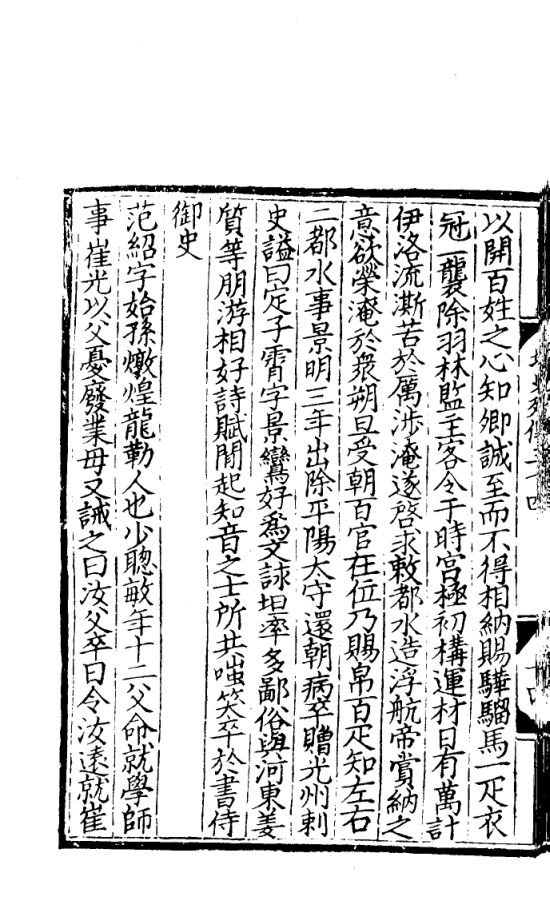 以開百姓之心知卿誠至而不得相納賜驊騮馬一疋衣
冠一襲除羽林監主客令于時宮極初構運材日有萬計
伊洛流澌苦於厲涉淹遂啓求敕都水造浮航帝賞納之
意欲榮淹於衆朔旦受朝百官在位乃賜帛百疋知左右
二都水事景明三年出除平陽太守還朝病卒贈光州刺
史謚曰定子霄字景鸞好爲文詠坦率多鄙俗與河東姜
質等朋游相好詩賦閒起知音之士所共嗤笑卒於書侍
御史
范紹字始孫燉煌龍勒人也少聰敏年十二父命就學師
事崔光以父憂廢業母又誡之曰汝父卒日令汝遠就崔